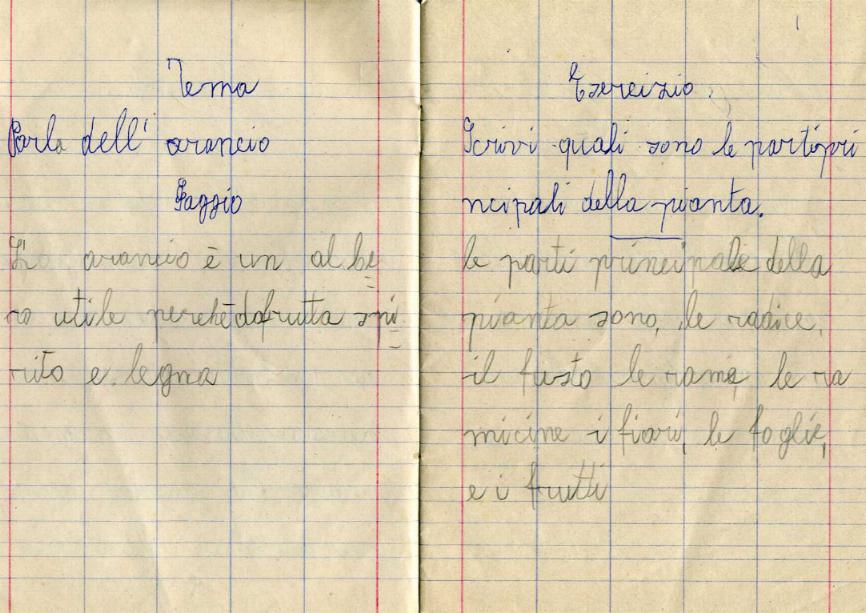 Tema
Parla dell' arancio
Saggio
L' arancio è un albe=
ro utile perchè dà frutta spi=
rito e legna
Esercizio.
Scrivi quali sono le parti pri
ncipali della pianta.
le parti principale della
pianta sono, le radice,
il fusto le rame le ra
micine i fiori, le foglie,
e i frutti